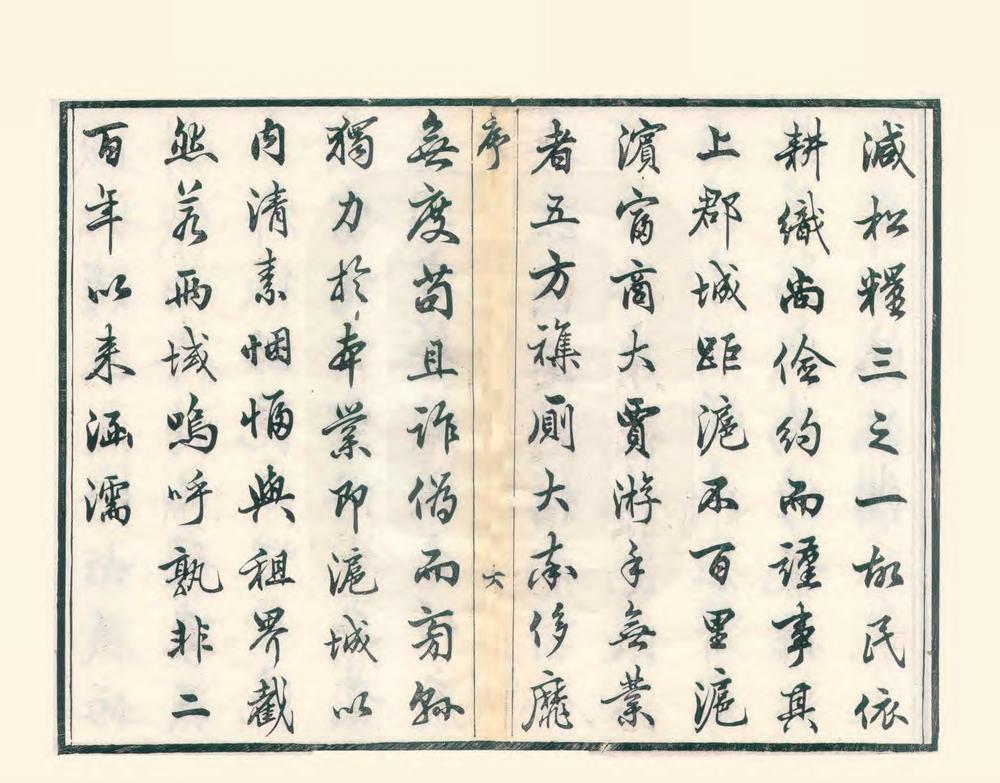 減松糧三之一故民依
耕織尚儉約而謹事其
上郡城距滬不百里滬
濱富商大賈游手無業
者五方襍厠大率侈靡
序
六
無度苟且詐偽而
獨力於本業即滬城以
內清素悃愊與租界截
然若兩域嗚呼孰非二
百年以來涵濡